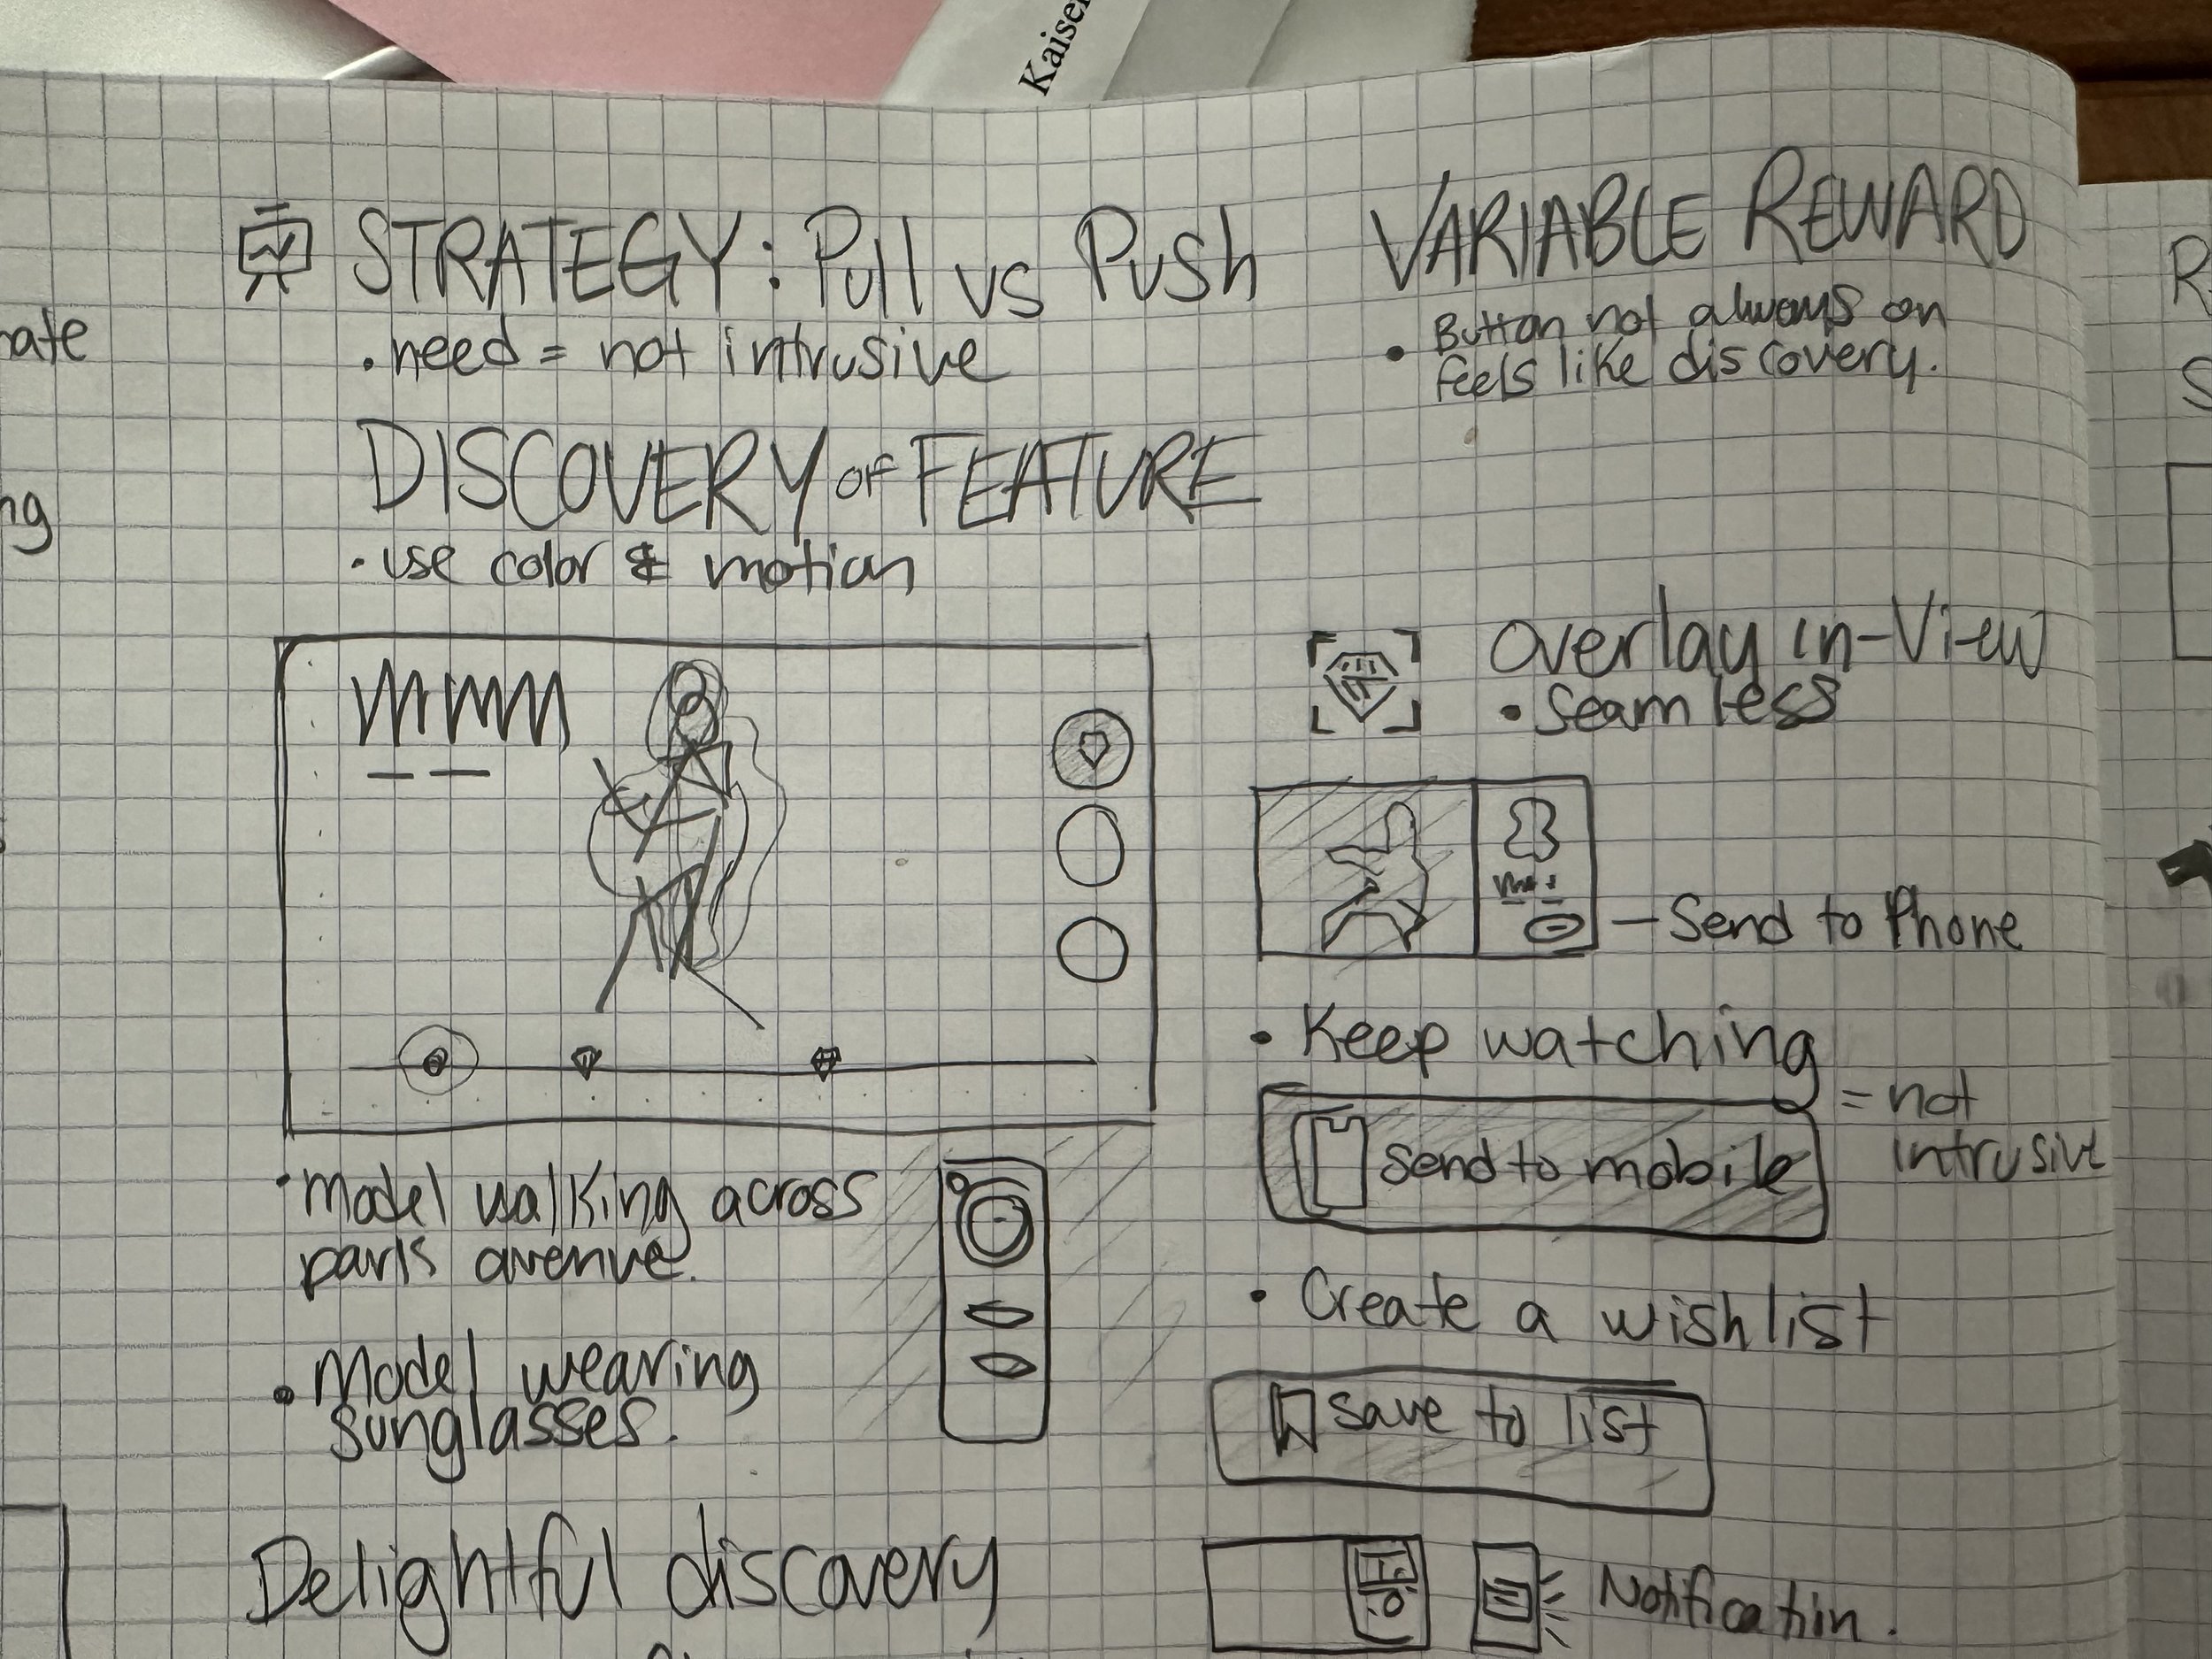 Kaiser
STRATEGY: Pull vs Push
• need = not intrusive
DISCOVERY OF FEATURE
• use color & motion
• Model walking across
paris avenue.
• Model wearing
sunglasses.
Delightful discovery
VARIABLE REWARD
• Button not always on
feels like discovery.
Overlay in-View
• Seamless
— Send to Phone
• Keep watching
= not
intrusive
Send to mobile
• Create a wishlist
Save to list
Notification.